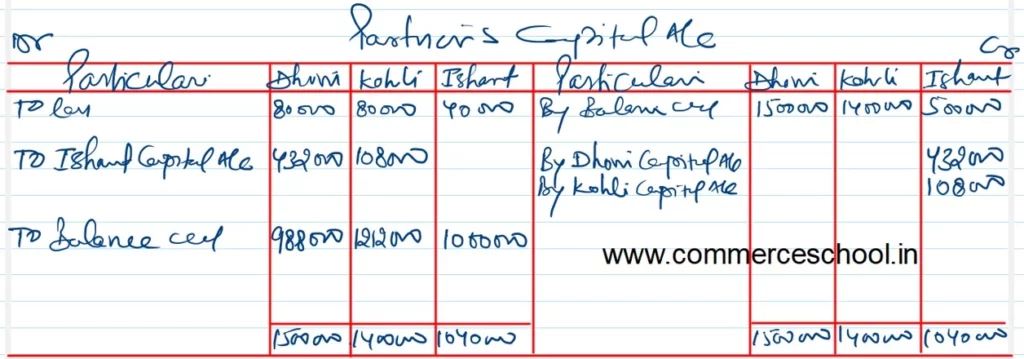 Dr Partner's Capital A/c Cr
Particulars Dhoni Kohli Ishant Particulars Dhoni Kohli Ishant
To loss 80000 80000 40000 By Balance c/f 1500000 1400000 500000
To Ishant Capital A/c 432000 108000 By Dhoni Capital A/c 432000
By Kohli Capital A/c 108000
To Balance c/f 988000 1212000 1000000
www.commerceschool.in
1500000 1400000 1040000 1500000 1400000 1040000